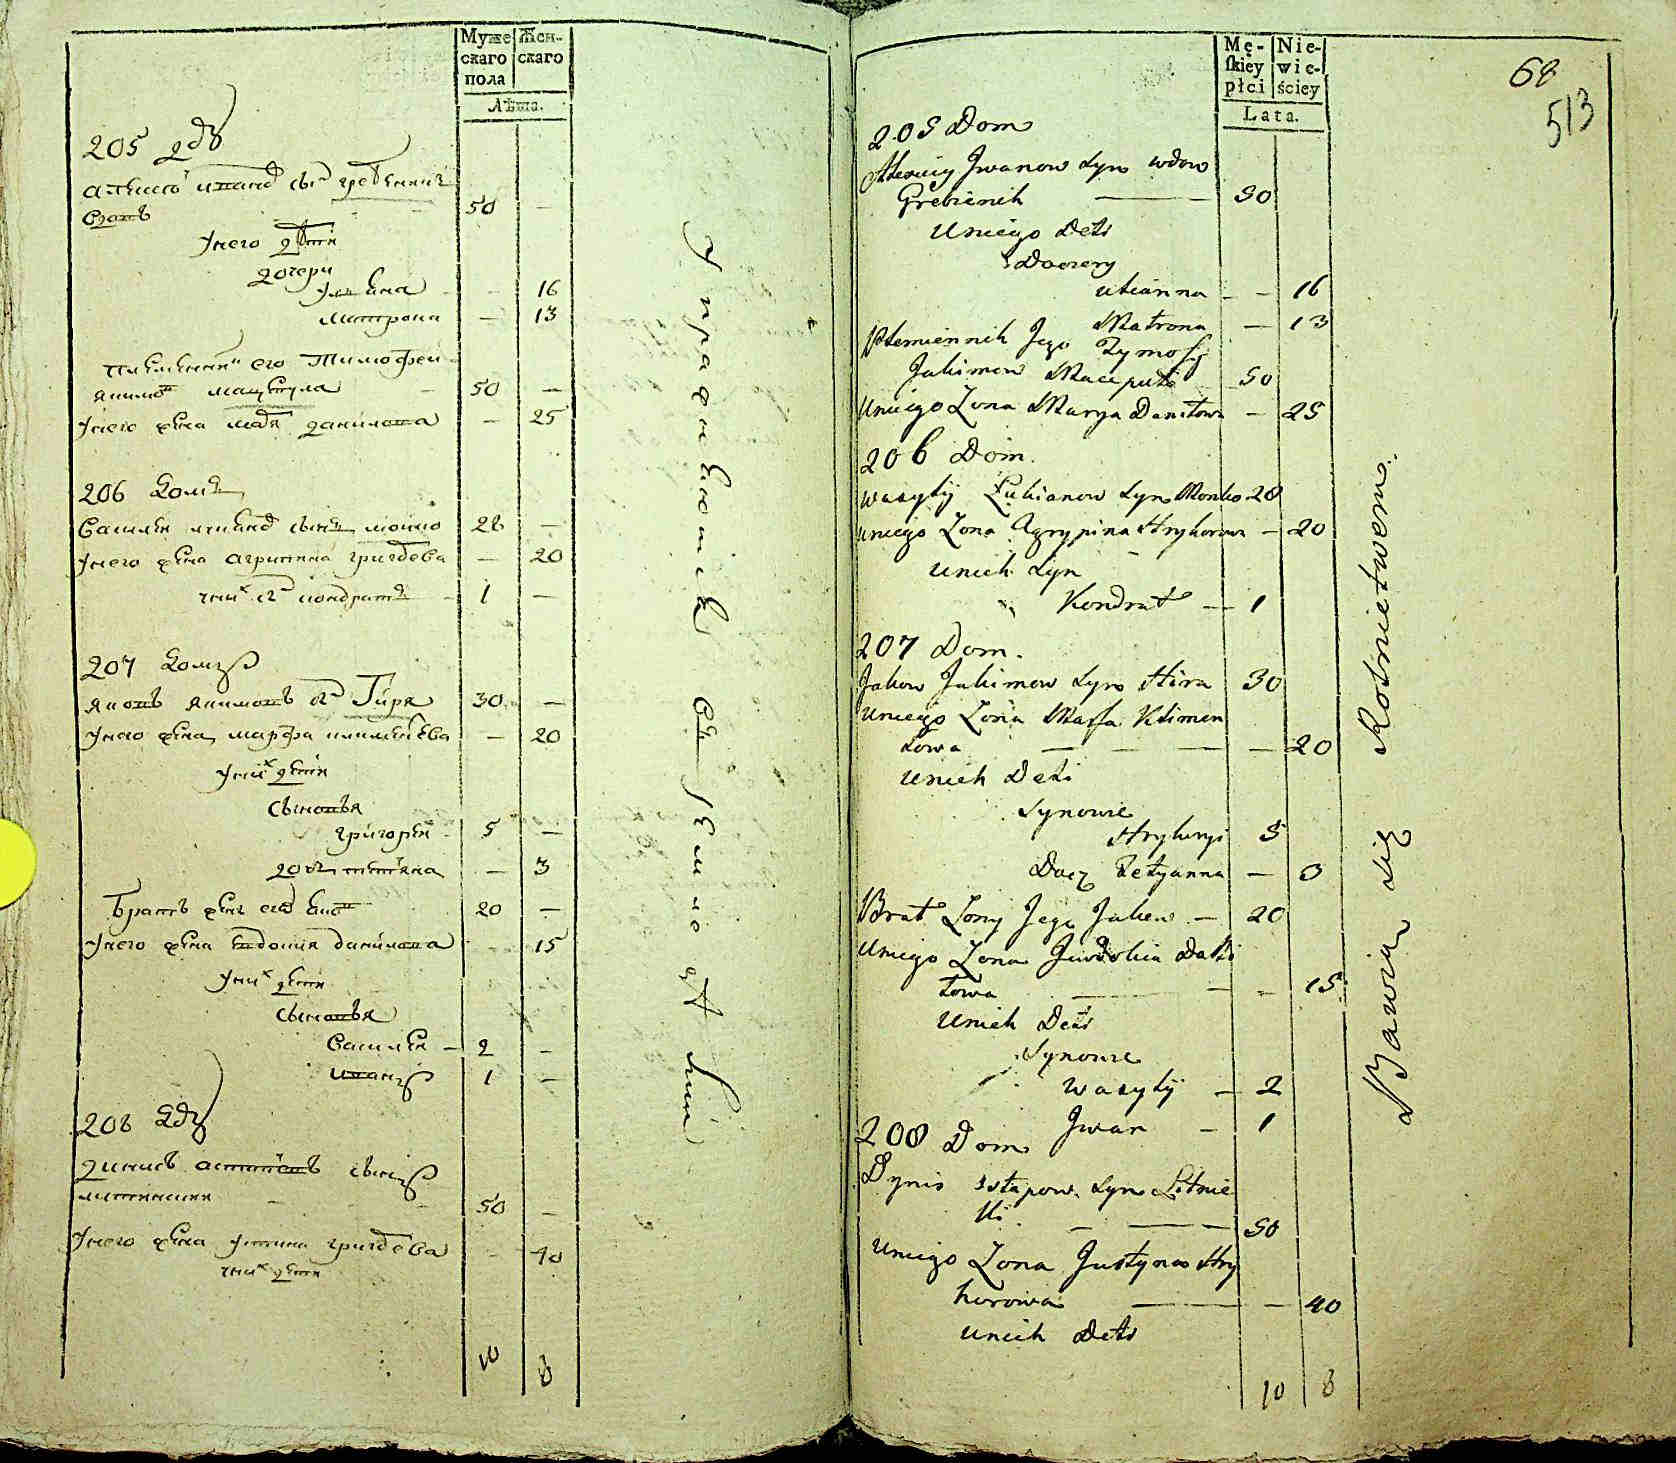 Муже
скаго
пола
Жен-
скаго
Лѣта.
205
сынъ
вдовъ 50 —
у него дѣти
дочери
Ульяна — 16
Матрона — 13
племенникъ его Тимофей
Якимовъ Мацепула — 50 —
у него жена Марья данилова — 25
206 домъ
Василей лукьяновъ сынъ мойко 28 —
у него жена агрипина григорьева — 20
у нихъ сынъ кондратей — 1 —
207 домъ
Яковъ Якимовъ сынъ Гиря 30 —
у него жена марфа климентьева — 20
у нихъ дѣти
сыновья
григорей 5 —
дочь татьяна — 3
братъ жены его 20 —
у него жена евдокия данилова 15
у нихъ дѣти
сыновья
Василей — 2 —
иванъ 1 —
208
динисъ остаповъ сынъ
50 —
у него жена устина григорьева — 40
у нихъ дѣти
10 8
Упражняются въ земледѣліи
Mę-
ſkiey
płci
Nie-
wie-
ściey
Lata.
68
513
205 Dom
Alexiey Jwanow Syn wdow
Grebienik — 50
Uniego Deti
Doczery
Ulianna — — 16
Matrona — 13
Plemiennik Jego Tymofiy
Jakimow Maceputa — 50
Uniego Zona Marya Daniłowa — 25
206 Dom
Wasylij Łukianow Syn Moyko 28
Uniego Zona Agrypina Hryhorowa — 20
Unich Syn
Kondrat — 1
207 Dom.
Jakow Jakimow Syn Hira 30
Uniego Zona Marfa Klimen
towa — — — — 20
Unich Deti
Synowie
Hryhoryi 5
Docz Tetyanna — 3
Brat Zony Jego Jakow — 20
Uniego Zona Jewdokia Dani
łowa — — — 15
Unich Deti
Synowie
Wasylij — 2
Jwan — 1
208 Dom
Dynis Ostapow Syn Litwie
ki — — — 50
Uniego Zona Justyna Hry
horowa — — 40
Unich Deti
10 8
Bawią się Rolnictwem.